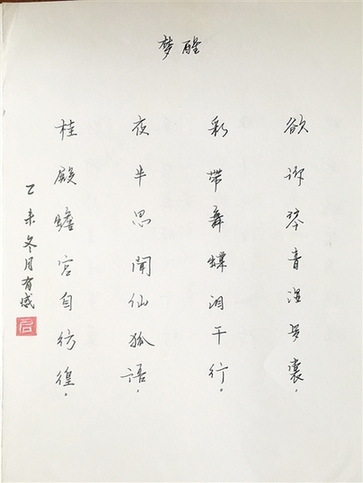 梦醒
欲琴音湿罗裳。
彩带舞蝶泪千行。
夜半思闻仙狐语。
桂殿蟾宫自彷徨。
乙未冬月有感